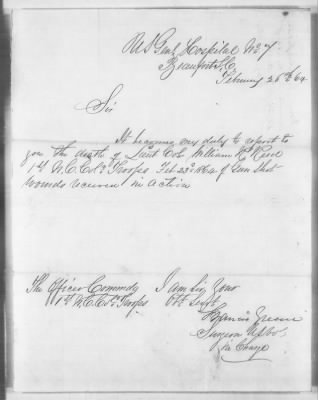 U S Genl Hospital No 7
Beaufort S.C.
February 26th 64
Sir
It becomes my duty to report to
you the death of Lieut Col William N. Reed
1st N.C. Cold Troops Feb 23d 1864 of Gun Shot
wounds received in Action
The Officer Commdg I am Sir Your
1st N.C. Cold Troops Obt Servt
Francis Greene
Surgeon U.S. Vol.
in Charge